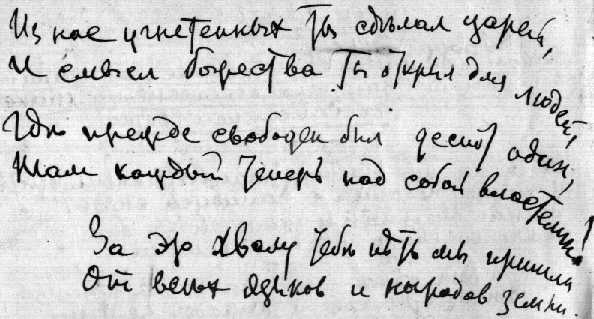 Из нас угнетенных ты сдѣлал царей,
И смысл божества ты открыл для людей,
Гдѣ прежде свободен был деспот один,
Там каждый теперь над собой властелин!
За это хвалу тебѣ пѣть мы пришли
От всѣх языков и народов земли.